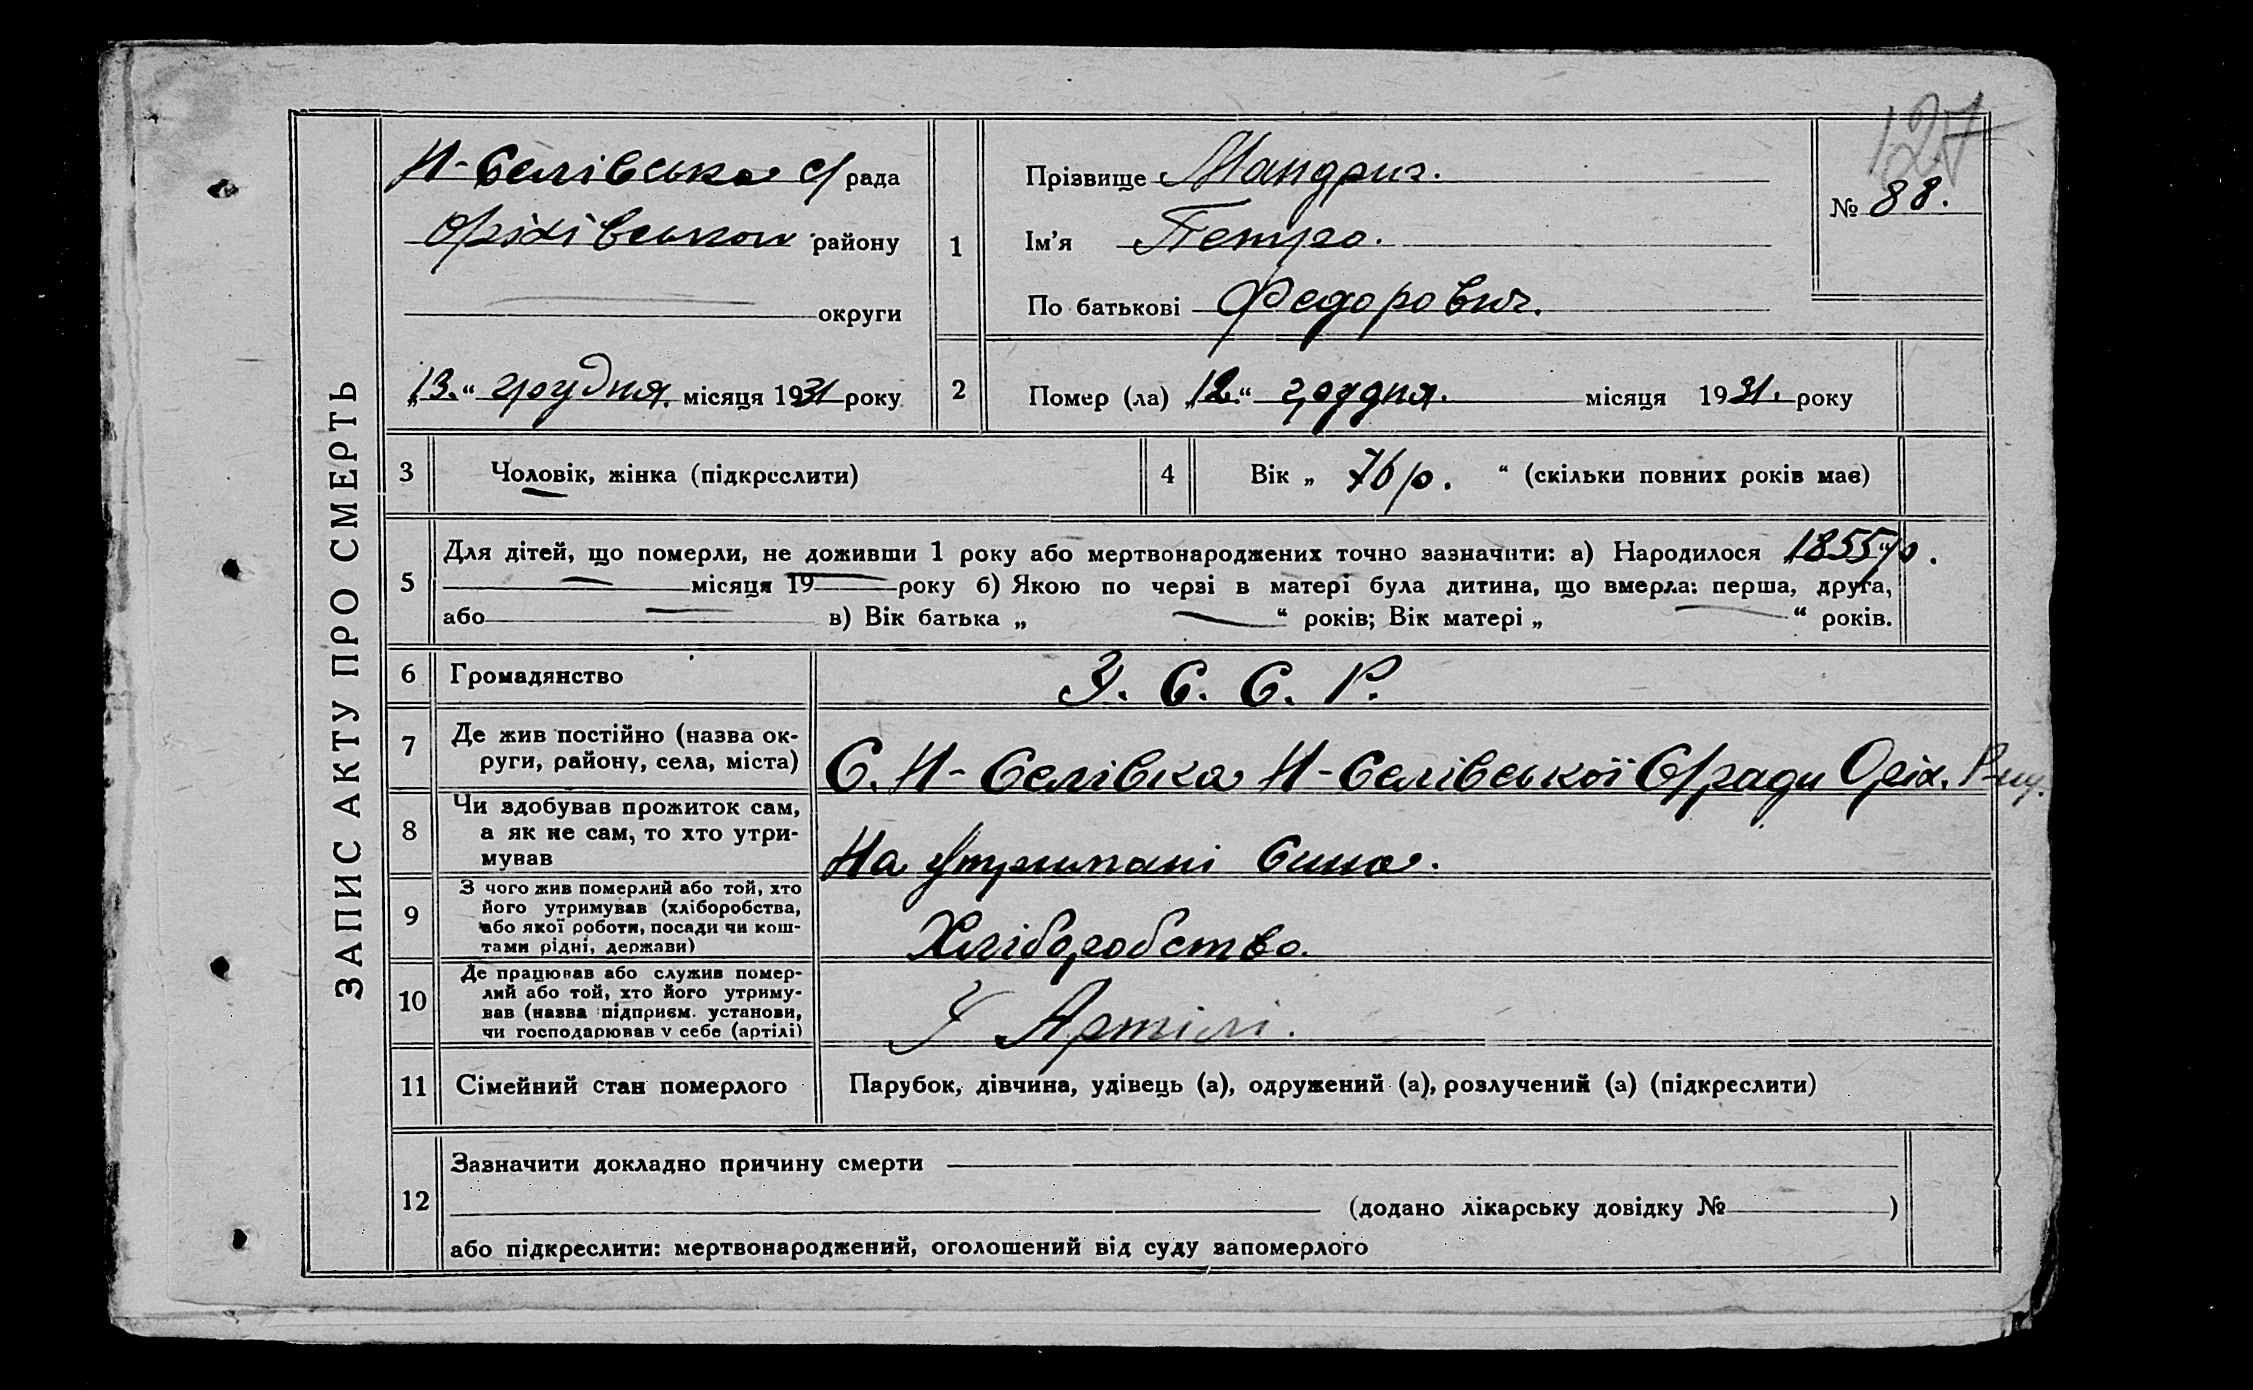 127
ЗАПИС АКТУ ПРО СМЕРТЬ
Н-Селівська С/рада
Оріхівського району
округи
„13.“ грудня місяця 1931 року
1
Прізвище Мандриг.
Ім'я Петро.
По батькові Федорович.
№ 88.
2
Помер (ла) „12.“ грудня. місяця 1931. року
3 Чоловік, жінка (підкреслити)
4 Вік „ 76 р. “ (скільки повних років має)
5 Для дітей, що померли, не доживши 1 року або мертвонароджених точно зазначити: а) Народилося „1855“р.
місяця 19 року б) Якою по черзі в матері була дитина, що вмерла: перша, друга,
або в) Вік батька „ “ років; Вік матері „ “ років.
6 Громадянство З. С. С. Р.
7 Де жив постійно (назва ок-
руги, району, села, міста)
С. Н-Селівка Н-Селівської С/ради Оріх. Р-ну.
8 Чи здобував прожиток сам,
а як не сам, то хто утри-
мував
На утримані Сина.
9 З чого жив померлий або той, хто
його утримував (хліборобства,
або якої роботи, посади чи кош-
тами рідні, держави)
Хліборобство.
10 Де працював або служив помер-
лий або той, хто його утриму-
вав (назва підприєм. установи,
чи господарював у себе (артілі)
У Артілі.
11 Сімейний стан померлого Парубок, дівчина, удівець (а), одружений (а), розлучений (а) (підкреслити)
12 Зазначити докладно причину смерти
(додано лікарську довідку № )
або підкреслити: мертвонароджений, оголошений від суду запомерлого